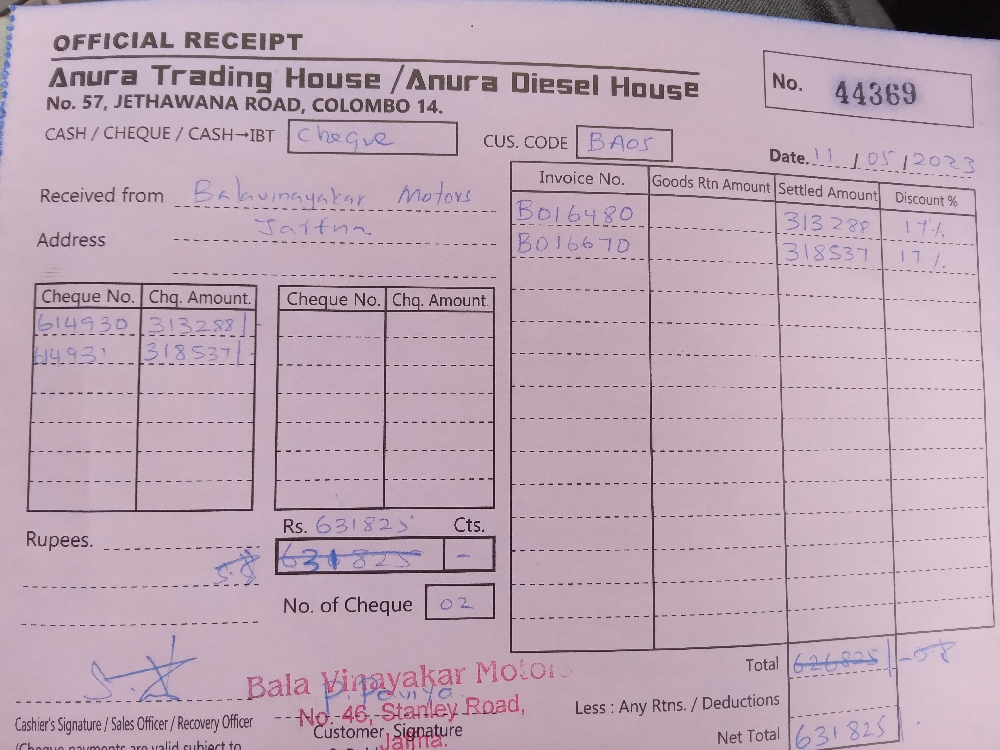 OFFICIAL RECEIPT
Anura Trading House / Anura Diesel House
No. 57, JETHAWANA ROAD, COLOMBO 14.
No. 44369
CASH / CHEQUE / CASH→IBT Cheque
CUS. CODE BA05
Date. 11 / 05 / 2023
Received from Balavinayakar Motors
Address Jaffna
Invoice No. Goods Rtn Amount Settled Amount Discount %
B016480 313288 17%
B016670 318537 17%
Cheque No. Chq. Amount. Cheque No. Chq. Amount.
614930 313288/-
614931 318537/-
Rs. 631825 Cts.
Rupees.
631825 -
No. of Cheque 02
Total 626825/-
Less : Any Rtns. / Deductions
Net Total 631825/.
Bala Vinayakar Motors
No. 46, Stanley Road,
Jaffna.
Cashier's Signature / Sales Officer / Recovery Officer
Customer Signature
(Cheque payments are valid subject to